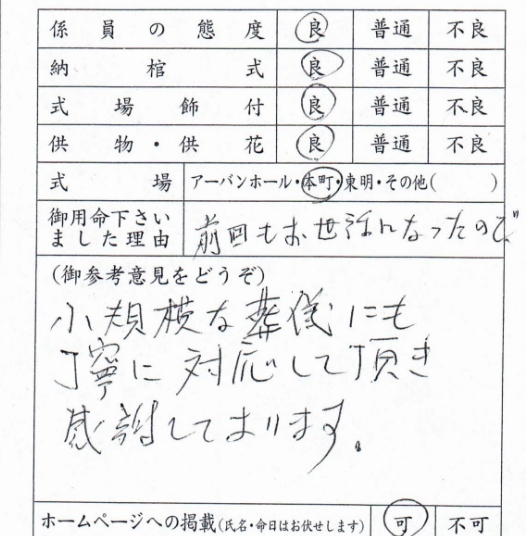 係員の態度 良 普通 不良
納棺式 良 普通 不良
式場飾付 良 普通 不良
供物・供花 良 普通 不良
式場 アーバンホール・本町・東明・その他( )
御用命下さい
ました理由
前回もお世話になったので
(御参考意見をどうぞ)
小規模な葬儀にも
丁寧に対応して頂き
感謝しております。
ホームページへの掲載(氏名・命日はお伏せします) 可 不可